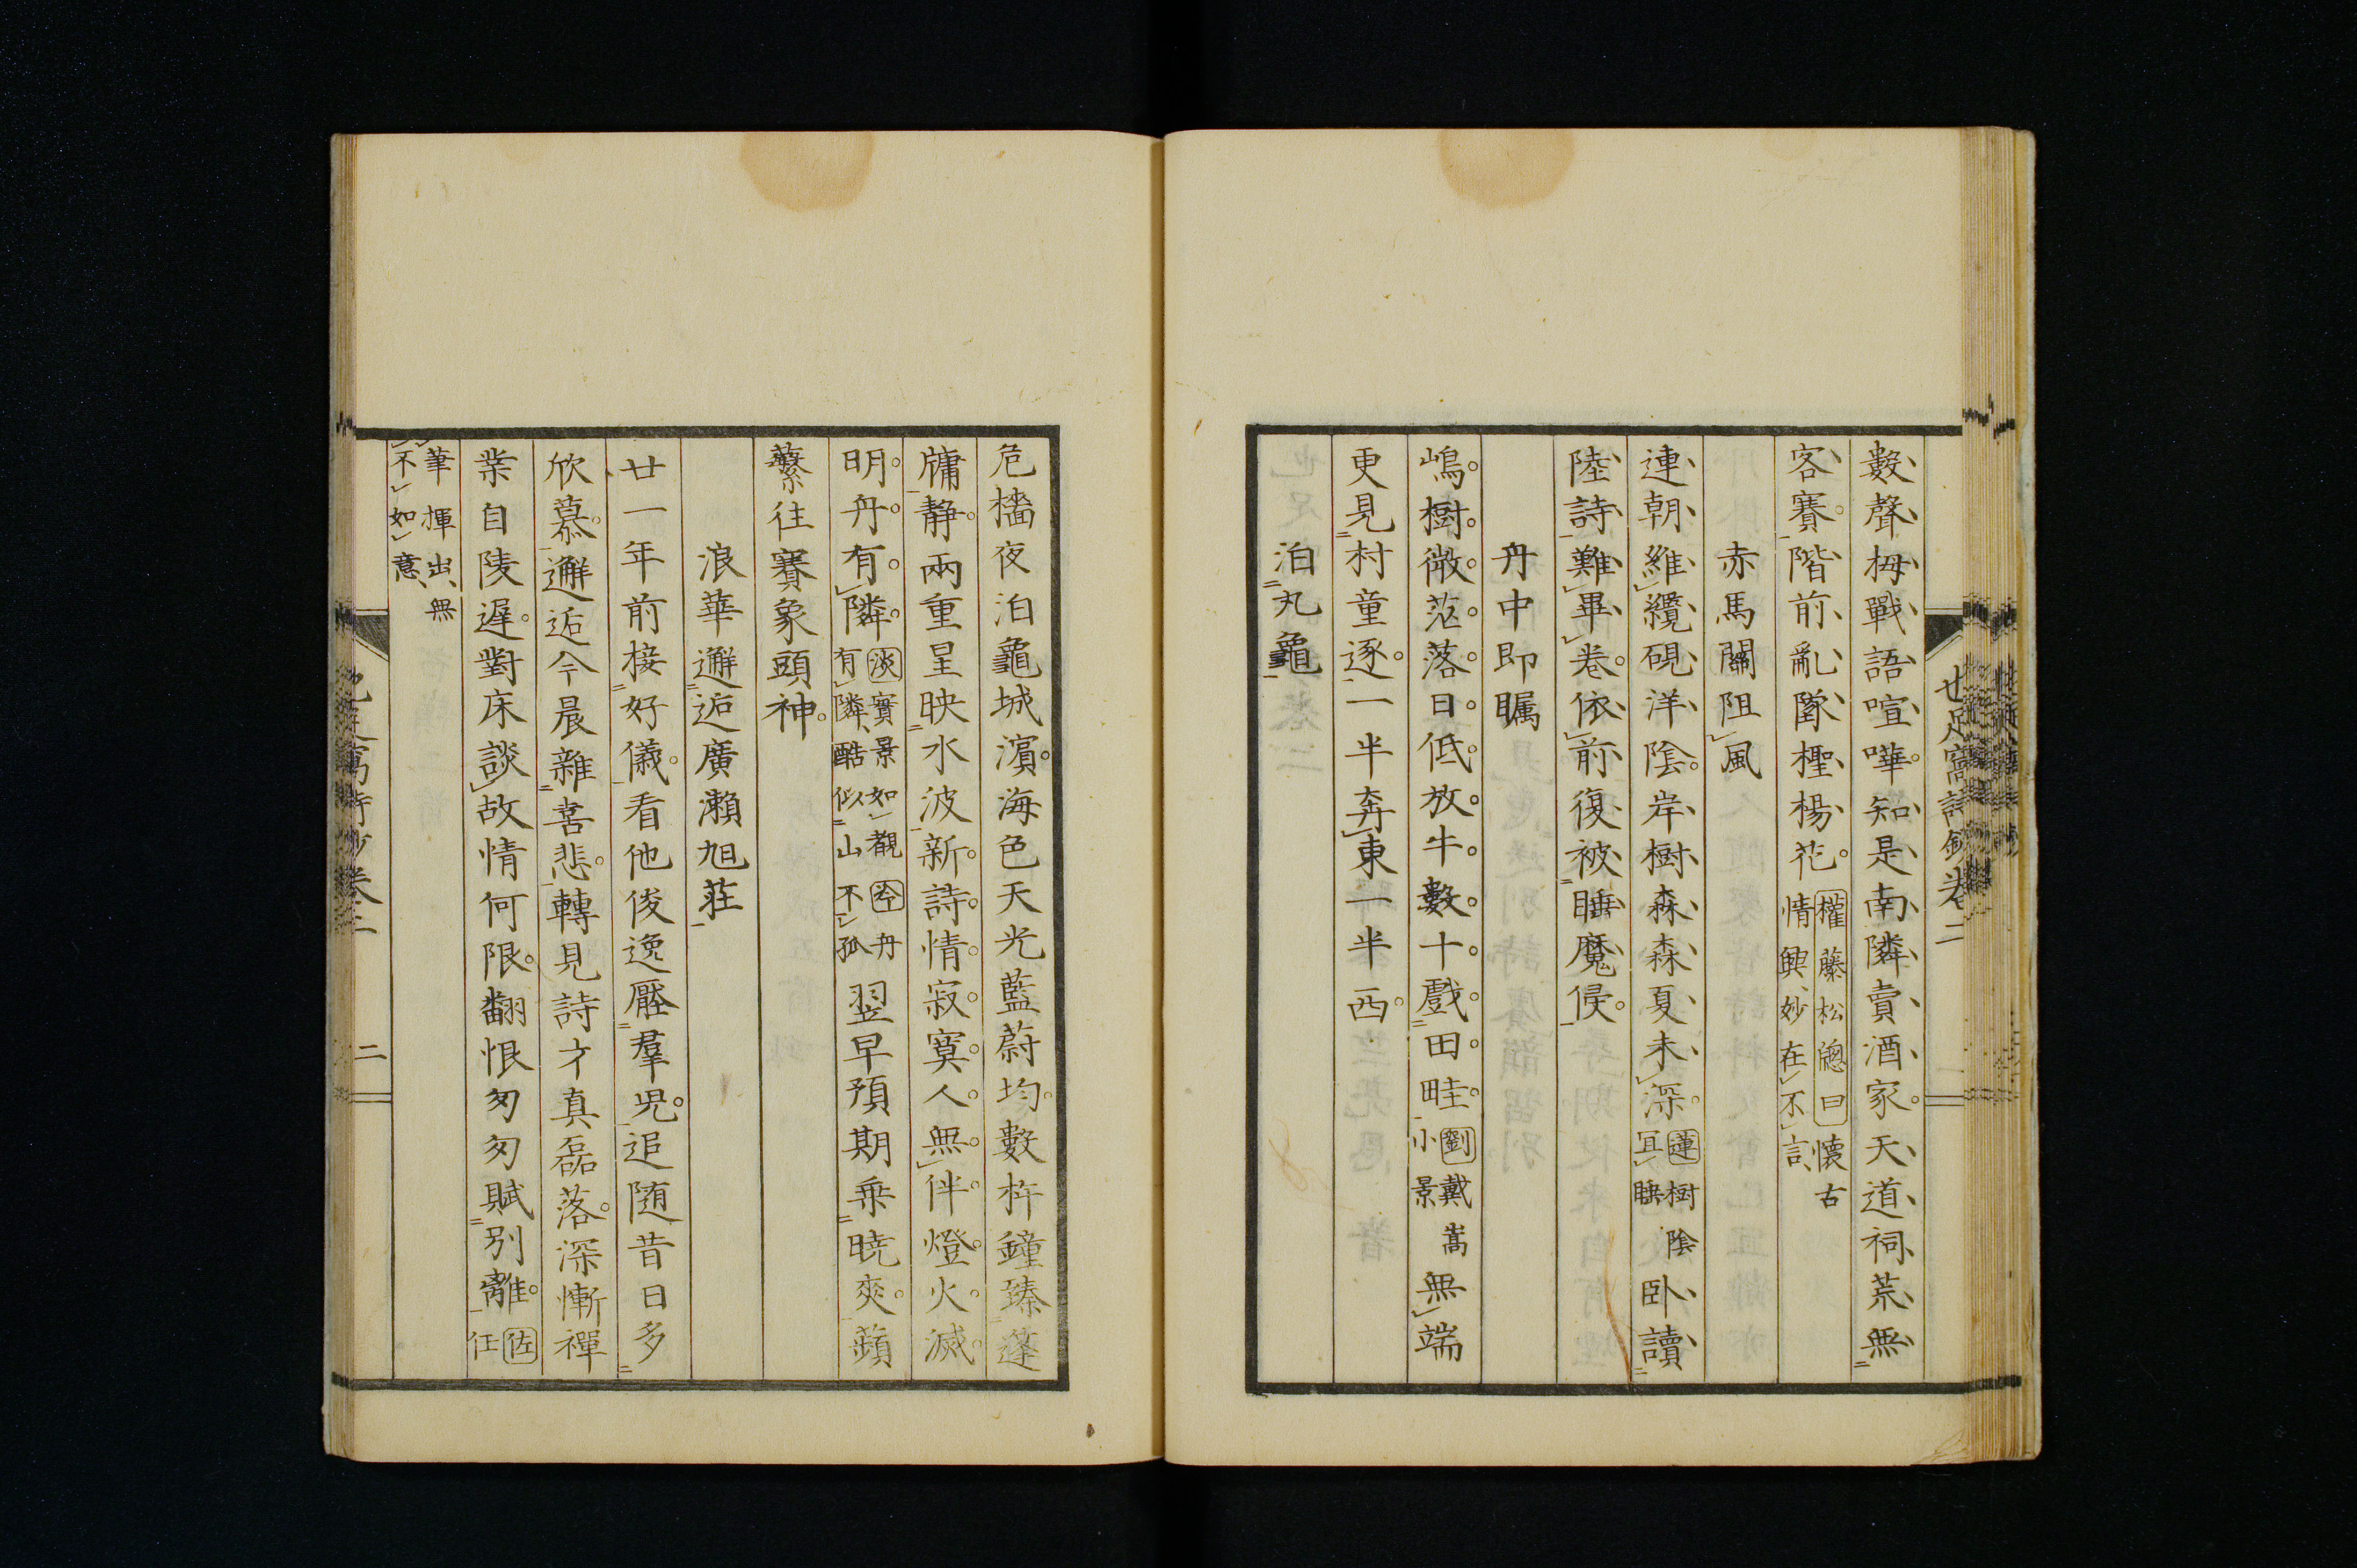 數聲拇戰語喧嘩知是南隣賣酒家天道祠荒無
客賽階前亂墜檉楊花 權藤松窻曰 懷古
情興妙在不言
赤馬關阻風
連朝維纜硯洋陰岸樹森森夏未深 蓮 樹陰
冝睡 卧讀
陸詩難畢卷依前復被睡魔侵
舟中即矚
嶋樹微茫落日低放牛數十戲田畦 劉 戴嵩
小景 無端
更見村童逐一半奔東一半西
泊丸龜
也足窩詩鈔卷二
危檣夜泊龜城濱海色天光藍蔚均數杵鐘臻蓬
牗静兩重星映水波新詩情寂寞人無伴燈火滅
明舟有隣 淡 實景如覩 谷 舟
有隣酷似山不孤 翌早預期乗暁爽蘋
蘩往賽象頭神
浪華邂逅廣瀬旭莊
廿一年前接好儀看他俊逸壓羣児追随昔日多
欣慕邂逅今晨雜喜悲轉見詩才真磊落深慚禪
業自陵遲對床談故情何限翻恨匆匆賦别離 佐
任
筆揮出無
不如意
二